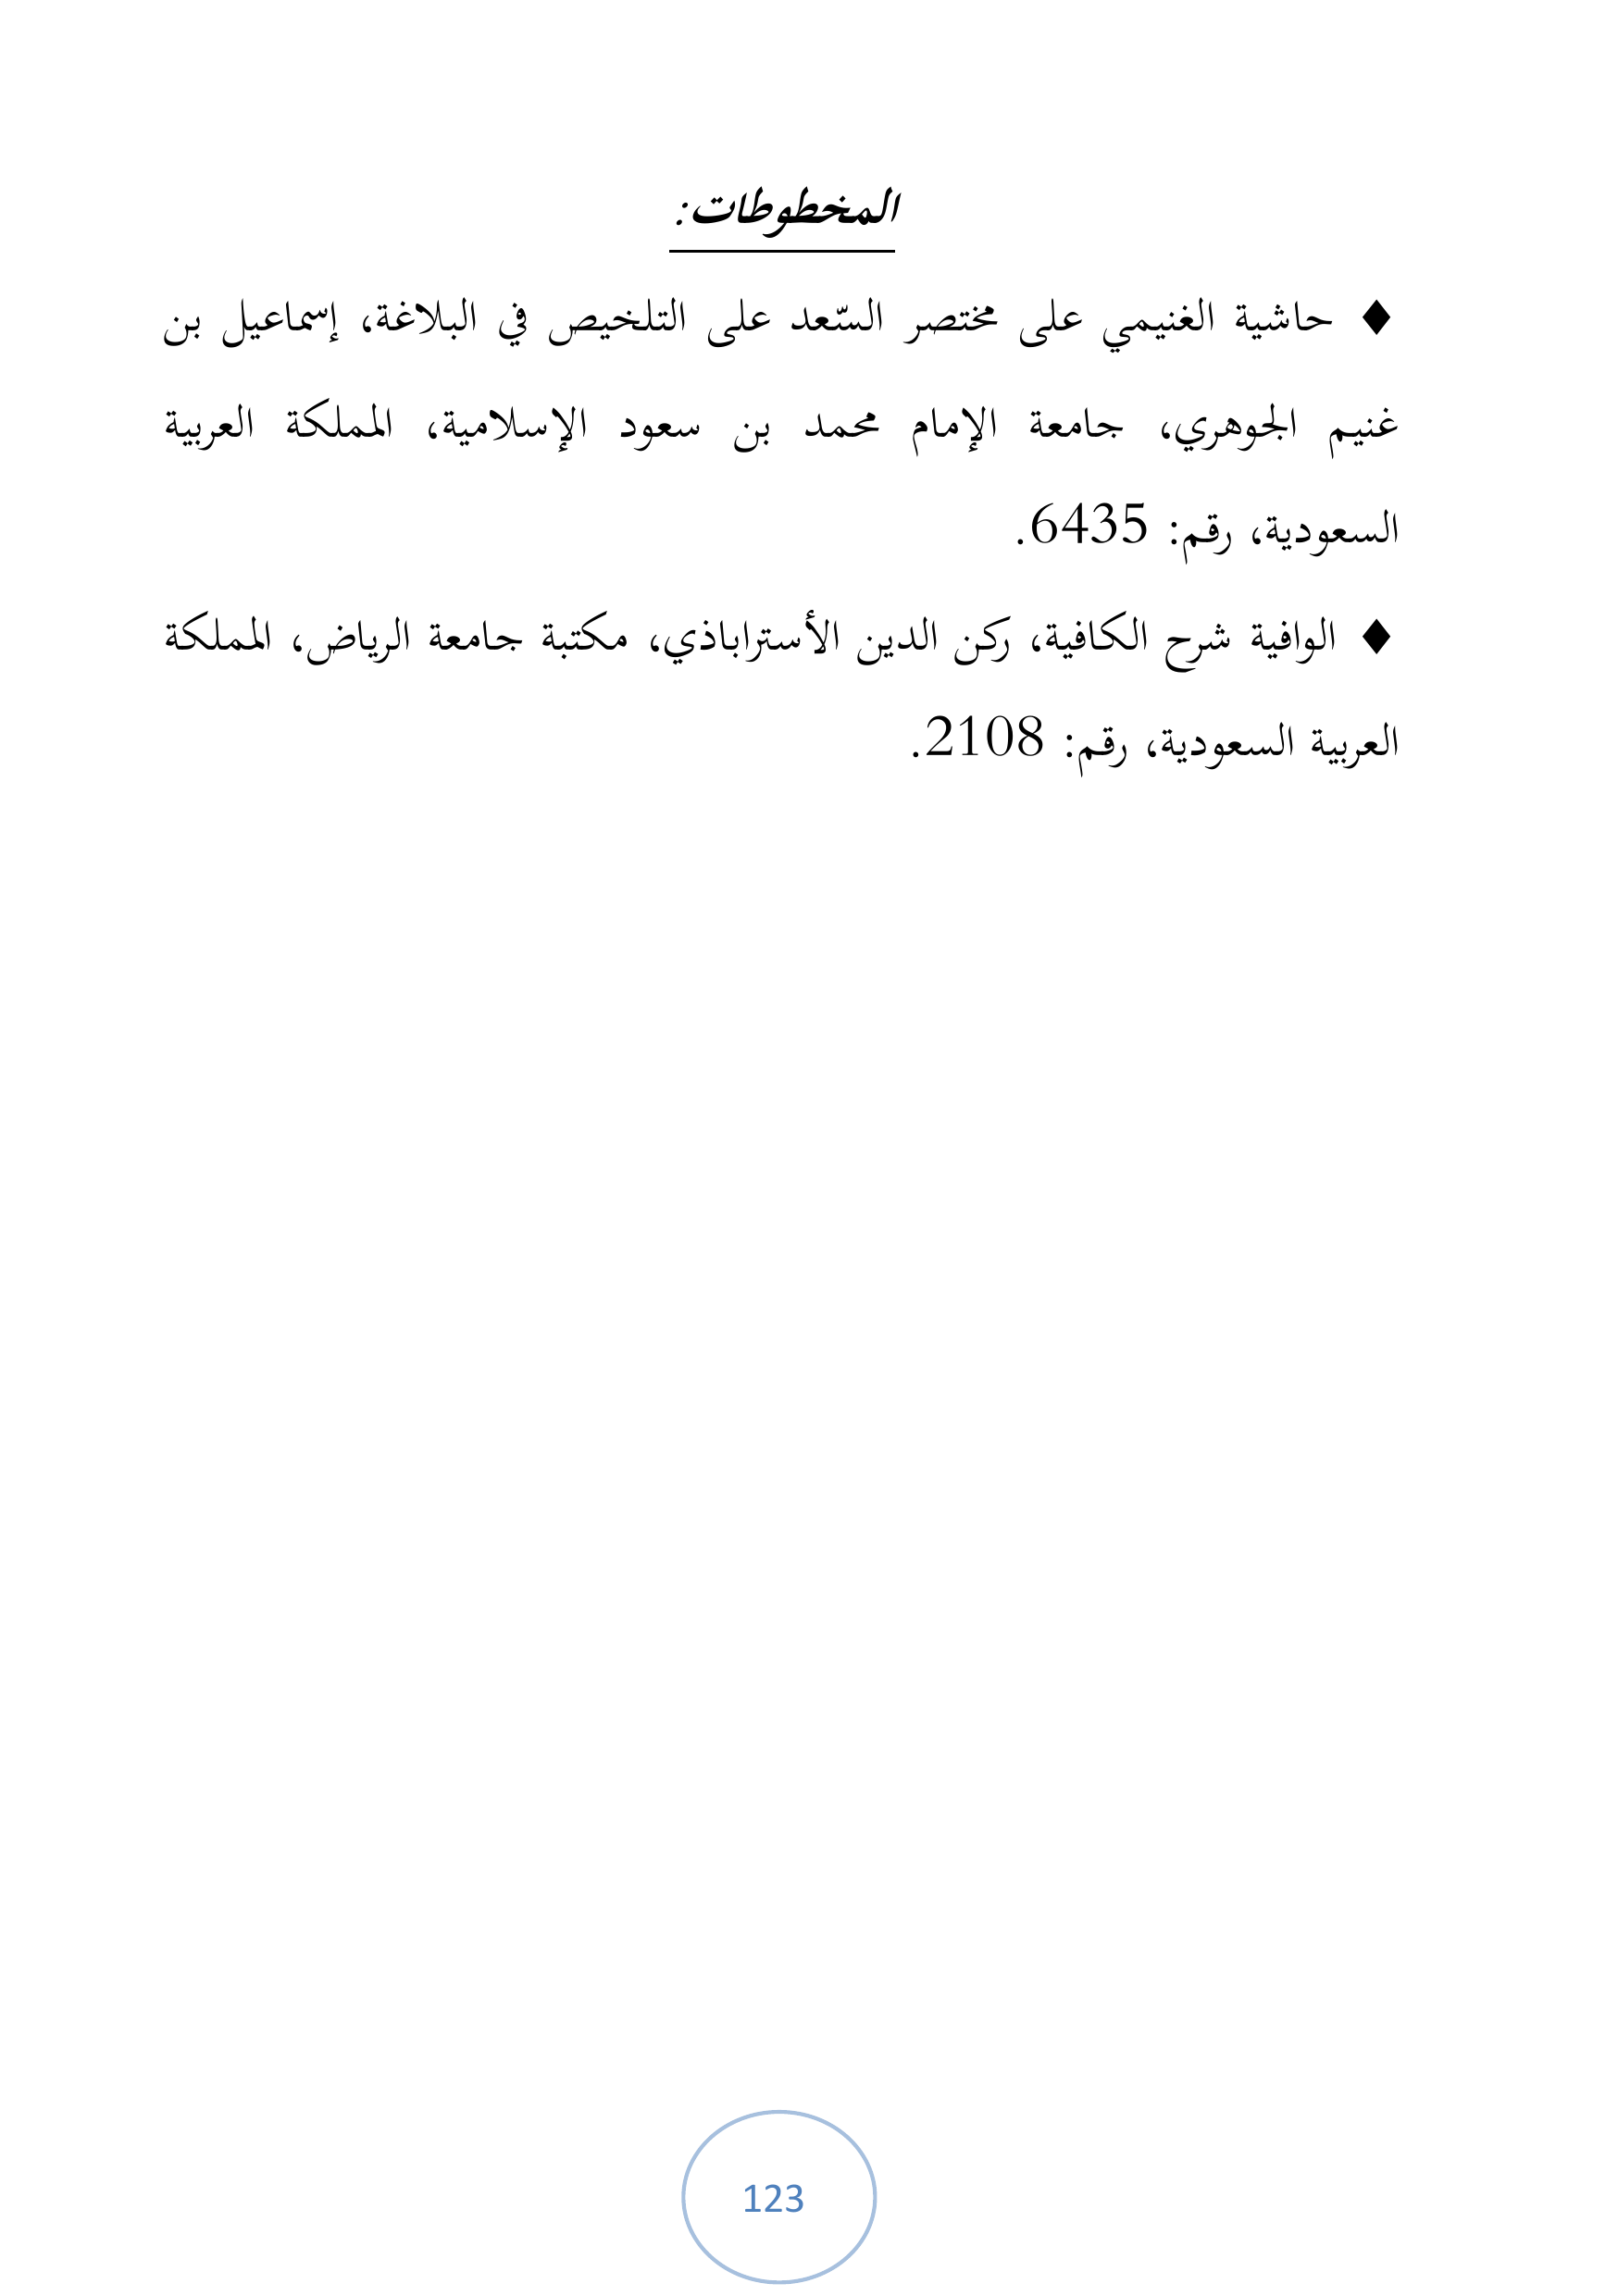 المخطوطات:
♦ حاشية الغنيمي على مختصر السّعد على التلخيص في البلاغة، إسماعيل بن
غنيم الجوهري، جامعة الإمام محمد بن سعود الإسلامية، المملكة العربية
السعودية، رقم: 6435.
♦ الوافية شرح الكافية، ركن الدين الأستراباذي، مكتبة جامعة الرياض، المملكة
العربية السعودية، رقم: 2108.
123